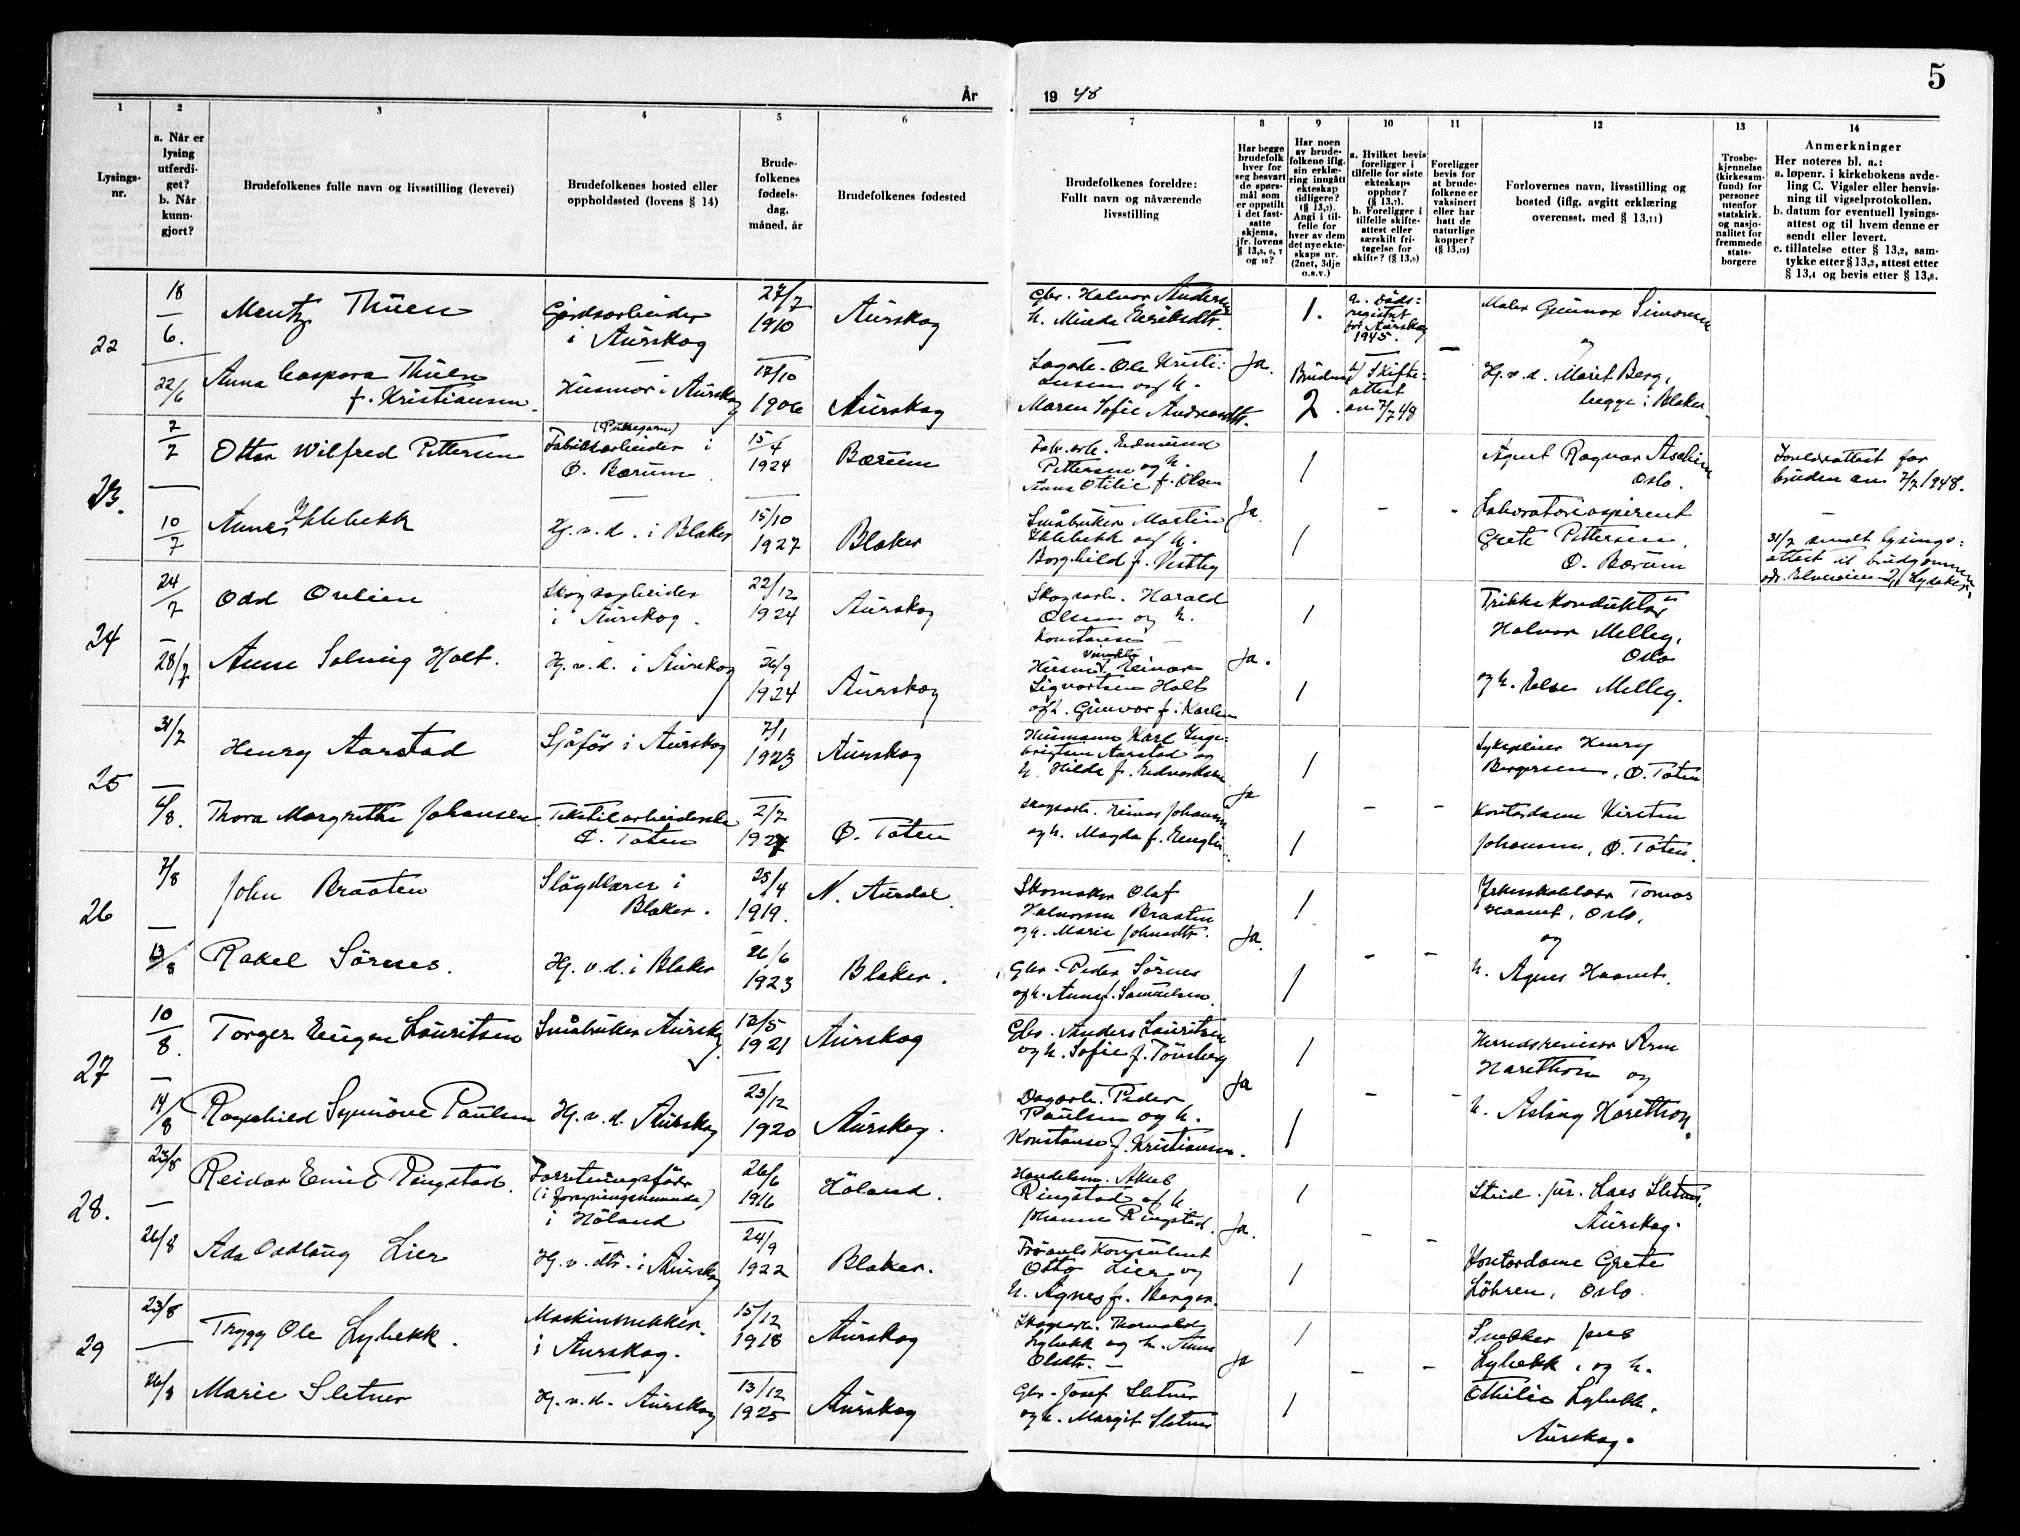 5
År
19 48
1
2
3
4
5
6
7
8
9
10
11
12
13
14
Lysings-
nr.
a. Når er
lysing
utferdi-
get?
b. Når
kunn-
gjort?
Brudefolkenes fulle navn og livsstilling (levevei)
Brudefolkenes bosted eller
oppholdssted (lovens § 14)
Brude-
folkenes
fødsels-
dag,
måned, år
Brudefolkenes fødested
Brudefolkenes foreldre:
Fullt navn og nåværende
livsstilling
Har begge
brudefolk
hver for
seg besvart
de spørs-
mål som
er oppstilt
i det fast-
satte
skjema,
jfr. lovens
Har noen
av brude-
folkene iflg.
sin erklæ-
ring inngått
ekteskap
tidligere?
Angi i til-
felle for
hver av dem
det nye ekte-
skaps nr.
(2net, 3dje
o.s.v.)
a. Hvilket bevis
foreligger i
tilfelle for siste
ekteskaps
opphør?
b. Foreligger i
tilfelle skifte-
attest eller
særskilt fri-
tagelse for
skifte?
Foreligger
bevis for
at brude-
folkene er
vaksinert
eller har
hatt de
naturlige
kopper?
Forlovernes navn, livsstilling og
bosted (iflg. avgitt erklæring
overensst. med § 13,11)
Trosbe-
kjennelse
(kirkesam-
fund) for
personer
utenfor
statskirk.
og nasjo-
nalitet for
fremmede
stats-
borgere
Anmerkninger
Her noteres bl. a.:
a. løpenr. i kirkebokens avde-
ling C. Vigsler eller henvis-
ning til vigselprotokollen.
b. datum for eventuell lysings-
attest og til hvem denne er
sendt eller levert.
c. tillatelse etter § 13,2, sam-
tykke etter § 13,3, attest etter
§ 13,4 og bevis etter § 13,8.
22
18/6.
Mentz Thuen
Gårdsarbeider
i Aurskog
27/7
1910
Aurskog
Gbr. Halvor Anders
1.
a. Døds-
registret
for Aurskog
1945.
Maler Gunnar Simonsen
og
22/6
Anna Caspara Thuen
f. Kristiansen.
Husmor i Aurskog
17/10
1906
Aurskog
Ole Kristi-
Maren Sofie
Ja.
Bruden
2
b) Skifte-
attest
av 7/7 48
Hj.v.d. Marit Berg,
begge i Blaker
23.
7/7
Otto Wilfred Pettersen
Fabrikkarbeider i
Ø. Bærum
15/4
1924
Bærum
Fab.arb. Edmund
Pettersen og h.
Anna Otilie f. Olsen
1
Agent Ragnar
Oslo.
Foreldreattest for
bruden av 7/7 1948.
10/7
Anne Ihlebekk
Hj.v.d. i Blaker
15/10
1927
Blaker
Småbruker Martin
Ihlebekk og h.
Borghild f. Vestby
Ja
1
Laboratorieaspirent
Grete Pettersen,
Ø. Bærum
31/7 sendt lysings-
attest til brudgommen
24
24/7
Odd Ovlien
Skogsarbeider
i Aurskog.
22/12
1924
Aurskog
Skogsarb. Harald
Olsen og h.
Konstanse
1
Trikkekonduktør
Halvor Melleg,
Oslo
28/7
Anne Solveig Holt.
Hj.v.d. i Aurskog
26/9
1924
Aurskog
Einar
Sigvartsen Holt
og h. Gunvor f. Karlsen
Ja.
1
og h. Else Melleg.
25
31/7
Henry Aarstad
Sjåfør i Aurskog
7/1
1923
Aurskog
Husmann Karl Inge-
brigtsen Aarstad og
h. Hilda f. Edvardsen
1
Henry
Bergersen, Ø. Toten
6/8.
Thora Margrethe Johansen
Tekstilarbeiderske
Ø. Toten
2/7
1927
Ø. Toten
Skogsarb. Einar Johansen
og h. Magda f.
Ja
1
Kontordame Kirsten
Johansen, Ø. Toten.
26
7/8
John Braaten
Sløydlærer i
Blaker.
25/4
1919.
N. Aurdal.
Skomaker Olaf
Halvorsen Braaten
og h. Marie Johnsdtr.
1
Tomas
Haanes, Oslo,
og
13/8
Rakel Sørnes.
Hj.v.d. i Blaker
26/6
1923
Blaker.
Gbr. Peder Sørnes
og h. Anna f. Samuelsen.
Ja.
1
h. Agnes Haanes.
27
10/8.
Torger Eugen Lauritsen
Småbruker Aurskog
12/5
1921
Aurskog
Gbr. Anders Lauritsen
og h. Sofie f. Tønsberg
1
Herredsrevisor Arne
Harethon og
14/8
Ragnhild Synnøve Paulsen
Hj.v.d. Aurskog
23/12
1920
Aurskog.
Dagarb. Peder
Paulsen og h.
Konstanse f. Kristiansen.
Ja
1
h. Aslaug Harethon.
28.
23/8
Reidar Emil Ringstad.
Forretningsfører
i Høland
26/6
1916
Høland.
Handelsm. Aksel
Ringstad og h.
Johanne Ringstad.
1
Stud. jur. Lars Sletner,
Aurskog.
26/8
Ada Oddlaug Lier
Hj.v.dtr. i Aurskog
24/9
1922
Blaker.
Otto Lier og
h. Agnes f. Berger.
Ja.
1
Kontordame Grete
Løhren, Oslo.
29
23/8
Trygg Ole Lybekk.
Maskinsnekker.
i Aurskog.
15/12
1918
Aurskog
Skogsarb. Thorvald
Lybekk og h. Anna
Olsdtr.
1
Snekker
Lybekk, og h.
26/8
Marie Sletner
Hj.v.d. Aurskog
13/12
1925
Aurskog
Gbr. Josef Sletner
og h. Margit Sletner
Ja
1
Othilie Lybekk,
Aurskog.